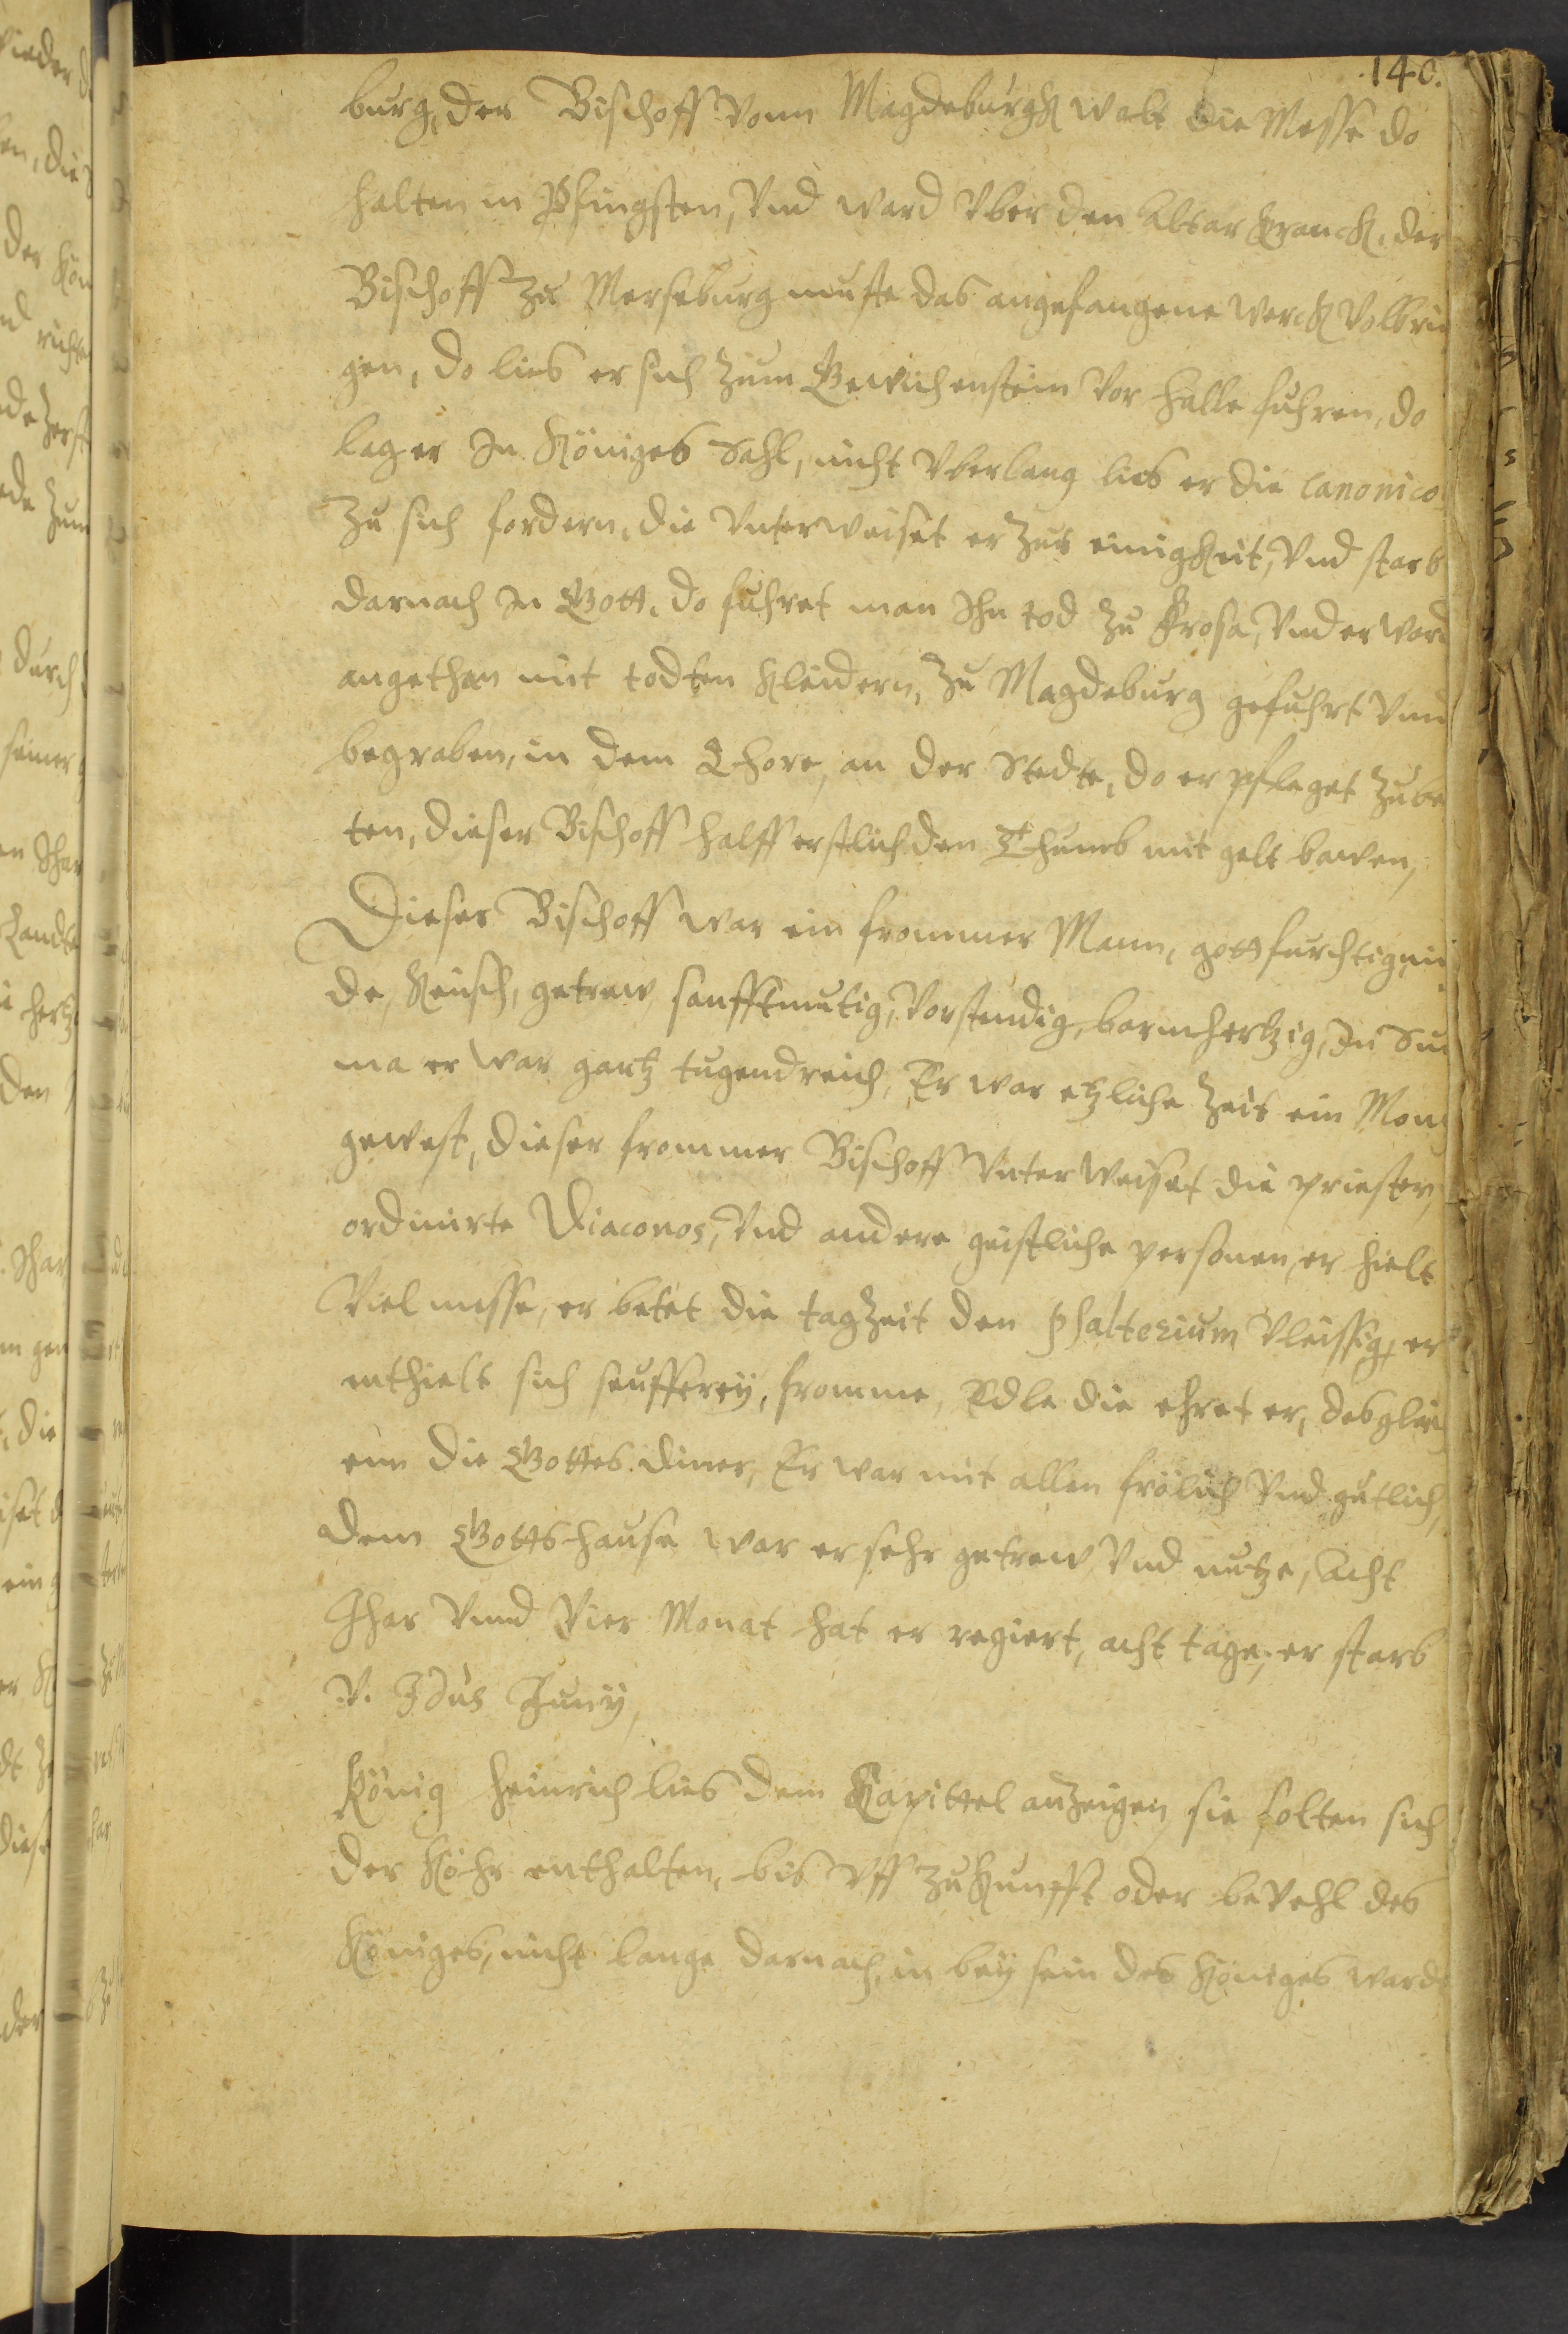 140.
burg, der Bischoff vonn Magdeburgk wolt die Messe do
halten in Pfingsten, Vnd ward vber den altar kranck, der
Bischoff zu Merseburg muste das angefangene werck volbrin
gen, do lies er sich zum Gewichenstein vor Halle fuhren, do
lag er In Königes Sahl, nicht vberlang lies er die Canonico
zu sich fordern, die vnterweiset er zur einigkeit, Vnd starb
darnach In Gott, do fuhret man Ihn tod zu Frosa, Vnd er ward
angethan mit todten kleidern, zu Magdeburg gefuhrt Vnnd
begraben, in dem Chore, an der Stedte, do er pfleget zu be
ten, dieser Bischoff halff erstlich den Thumb mit gelt bawen,
Dieser Bischoff war ein frommer Mann, gottfurchtig, mi
de, keusch, getrew, sanfftmutig, Vorstendig, barmhertzig, In Sum
ma er war gantz tugendreich, Er war etzliche zeit ein Monc
gewest, dieser frommer Bischoff vnterweiset die priester,
ordinirte Diaconos, Vnd andere geistliche personen, er hielt
Viel messe, er betet die tagzeit den psalterium vleissig, er
enthielt sich seufferey, fromme, Edle die ehret er, desgleich
enn die Gottes diner, Er war mit allen frölich Vnd gutlich,
dem Gottshause war er sehr getrew, Vnd nutze, Acht
Jhar Vnnd Vier Monat hat er regiert, acht tage, er starb
V. Idus Juny,
König Heinrich lies dem Kapittel anzeigen, sie solten sich
der Köhr enthalten, bis vff zukunfft oder bevehl des
Königes, nicht lange darnach, in beysein des Königes ward